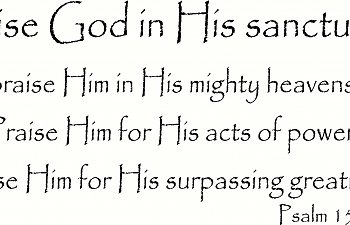 ise God in His sanctu
praise Him in His mighty heavens
Praise Him for His acts of power
se Him for His surpassing great
Psalm 15